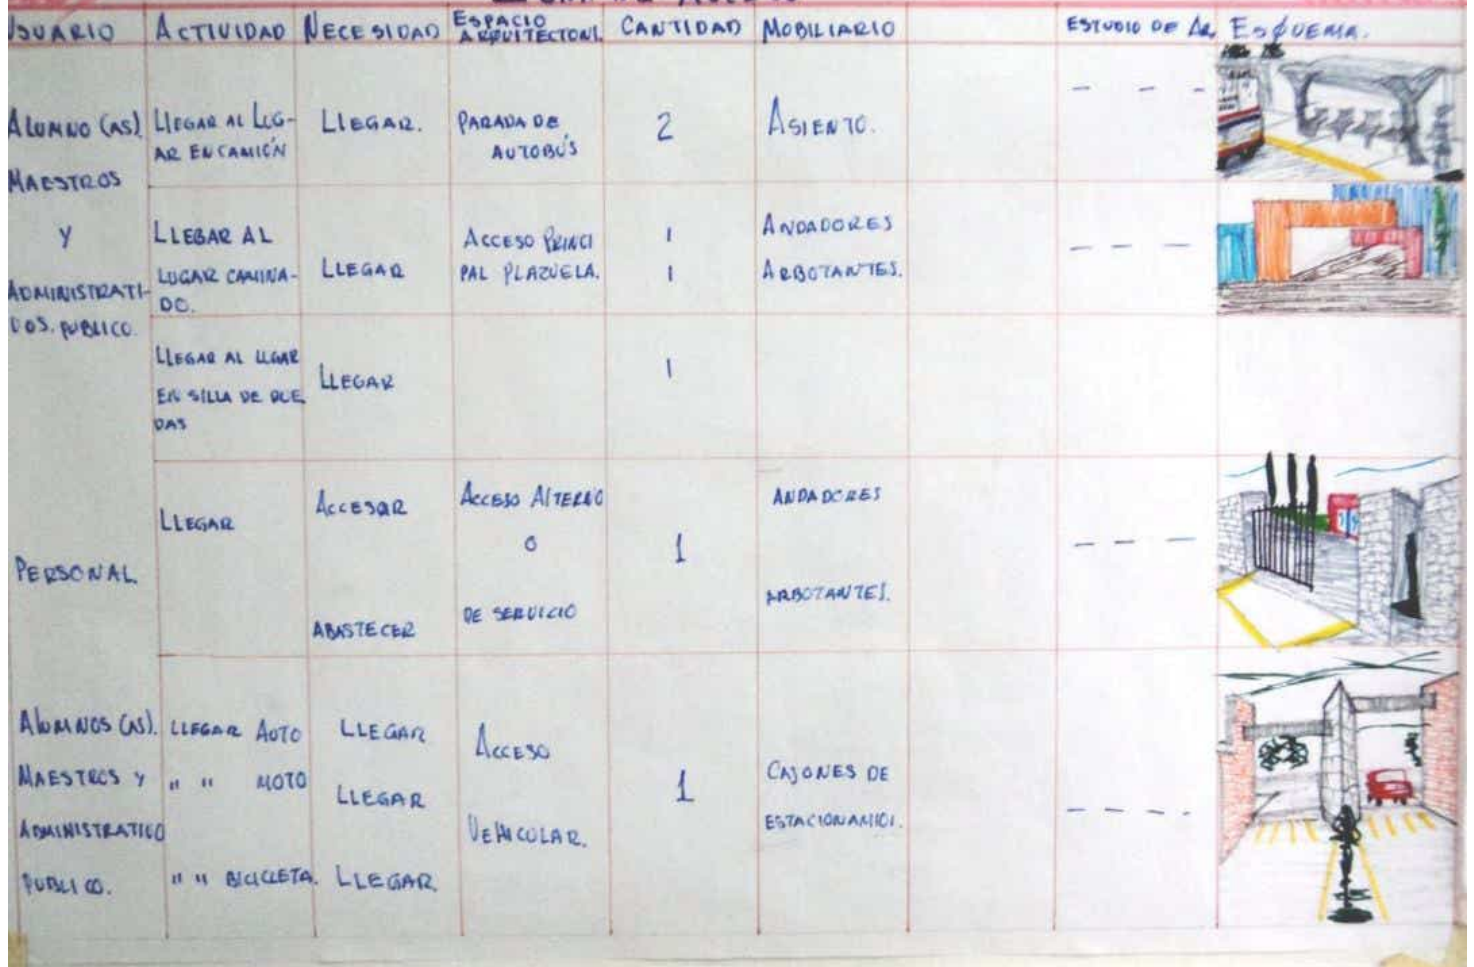 USUARIO ACTIVIDAD NECESIDAD ESPACIO ARQUITECTONI. CANTIDAD MOBILIARIO ESTUDIO DE AR. ESQUEMA.
ALUMNO (AS)
MAESTROS
Y
ADMINISTRATI-
VOS. PUBLICO.
LLEGAR AL LUG-
AR EN CAMIÓN
LLEGAR.
PARADA DE
AUTOBÚS
2
ASIENTO.
LLEGAR AL
LUGAR CAMINA-
DO.
LLEGAR
ACCESO PRINCI
PAL PLAZUELA.
1
1
ANDADORES
ARBOTANTES.
LLEGAR AL LUGAR
EN SILLA DE RUE
DAS
LLEGAR
1
PERSONAL
LLEGAR
ACCESAR
ABASTECER
ACCESO ALTERNO
O
DE SERVICIO
1
ANDADORES
ARBOTANTES.
ALUMNOS (AS).
MAESTROS Y
ADMINISTRATIVO
PUBLICO.
LLEGAR AUTO
" " MOTO
" " BICICLETA.
LLEGAR
LLEGAR
LLEGAR.
ACCESO
VEHICULAR.
1
CAJONES DE
ESTACIONAMIO.